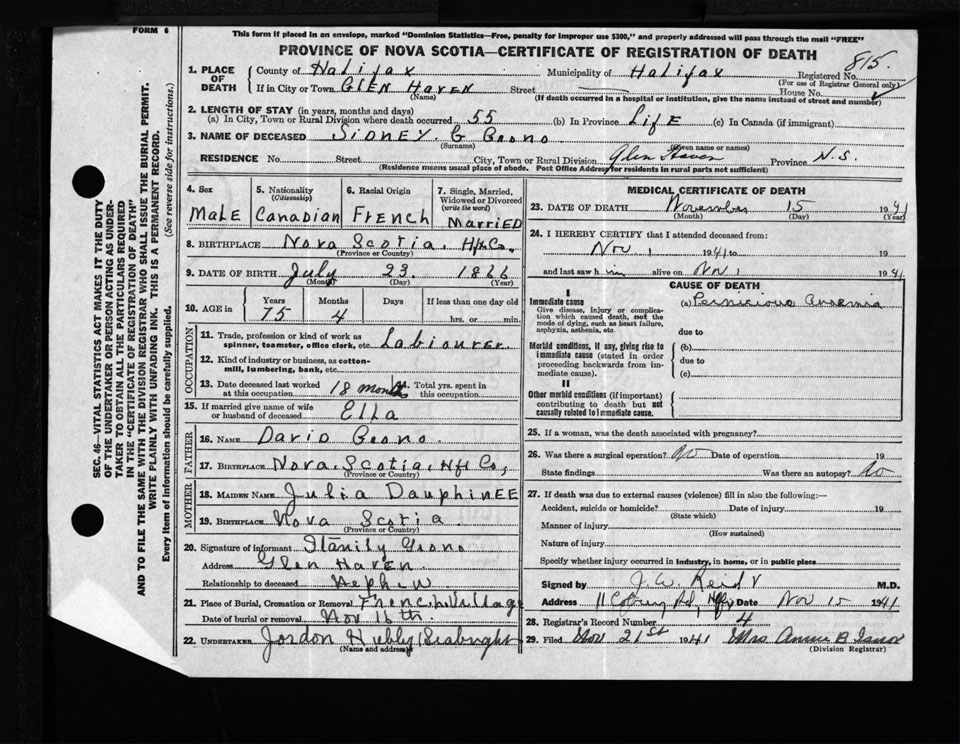 FORM 6
This form if placed in an envelope, marked "Dominion Statistics—Free, penalty for improper use $300," and properly addressed will pass through the mail "FREE"
PROVINCE OF NOVA SCOTIA—CERTIFICATE OF REGISTRATION OF DEATH
815.
1. PLACE OF DEATH County of Halifax Municipality of Halifax Registered No.
(For use of Registrar General only)
If in City or Town GLEN HAVEN Street House No.
(Name) (If death occurred in a hospital or institution, give the name instead of street and number)
2. LENGTH OF STAY (in years, months and days)
(a) In City, Town or Rural Division where death occurred 55 (b) In Province LifE (c) In Canada (if immigrant)
3. NAME OF DECEASED SIDNEY. G Grono
(Surname) (Given name or names)
RESIDENCE No. Street City, Town or Rural Division Glen Haven Province N.S.
(Residence means usual place of abode. Post Office Address for residents in rural parts not sufficient)
SEC. 46—VITAL STATISTICS ACT MAKES IT THE DUTY
OF THE UNDERTAKER OR PERSON ACTING AS UNDER-
TAKER TO OBTAIN ALL THE PARTICULARS REQUIRED
IN THE "CERTIFICATE OF REGISTRATION OF DEATH"
AND TO FILE THE SAME WITH THE DIVISION REGISTRAR WHO SHALL ISSUE THE BURIAL PERMIT.
WRITE PLAINLY WITH UNFADING INK. THIS IS A PERMANENT RECORD.
Every item of information should be carefully supplied. (See reverse side for instructions.)
4. Sex 5. Nationality (Citizenship) 6. Racial Origin 7. Single, Married, Widowed or Divorced (write the word)
MalE Canadian French MarriED
8. BIRTHPLACE Nova Scotia. Hfx Co.
(Province or Country)
9. DATE OF BIRTH July 23. 1866
(Month) (Day) (Year)
10. AGE in Years Months Days If less than one day old
75 4 hrs. or min.
OCCUPATION
11. Trade, profession or kind of work as spinner, teamster, office clerk, etc. Labourer.
12. Kind of industry or business, as cotton-mill, lumbering, bank, etc.
13. Date deceased last worked at this occupation 18 months Total yrs. spent in this occupation
15. If married give name of wife or husband of deceased Ella
FATHER
16. NAME David Grono.
17. BIRTHPLACE Nova. Scotia, Hfx Co,
(Province or Country)
MOTHER
18. MAIDEN NAME Julia DauphinEE
19. BIRTHPLACE Nova Scotia.
(Province or Country)
20. Signature of informant Stanily Grono
Address GLen HavEN.
Relationship to deceased Nephew
21. Place of Burial, Cremation or Removal French Village
Date of burial or removal Nov 16th.
22. UNDERTAKER Jordon Hubly Seabright
(Name and address)
MEDICAL CERTIFICATE OF DEATH
23. DATE OF DEATH November 15 1941
(Month) (Day) (Year)
24. I HEREBY CERTIFY that I attended deceased from:
Nov 1 1941 to 19
and last saw him alive on Nov 1 1941
CAUSE OF DEATH
I
Immediate cause (a) Pernicious Anaemia
Give disease, injury or complication which caused death, not the mode of dying, such as heart failure, asphyxia, asthenia, etc. due to
Morbid conditions, if any, giving rise to immediate cause (stated in order proceeding backwards from immediate cause). (b)
due to
(c)
II
Other morbid conditions (if important) contributing to death but not causally related to immediate cause.
25. If a woman, was the death associated with pregnancy?
26. Was there a surgical operation? No Date of operation 19
State findings Was there an autopsy? No
27. If death was due to external causes (violence) fill in also the following:—
Accident, suicide or homicide? Date of injury 19
(State which)
Manner of injury
(How sustained)
Nature of injury
Specify whether injury occurred in industry, in home, or in public place
Signed by J. W. Reid M.D.
Address 11 Coburg Rd, Hfx Date Nov 15 1941
28. Registrar's Record Number 4
29. Filed Nov 21st 1941 Mrs Annie B
(Division Registrar)